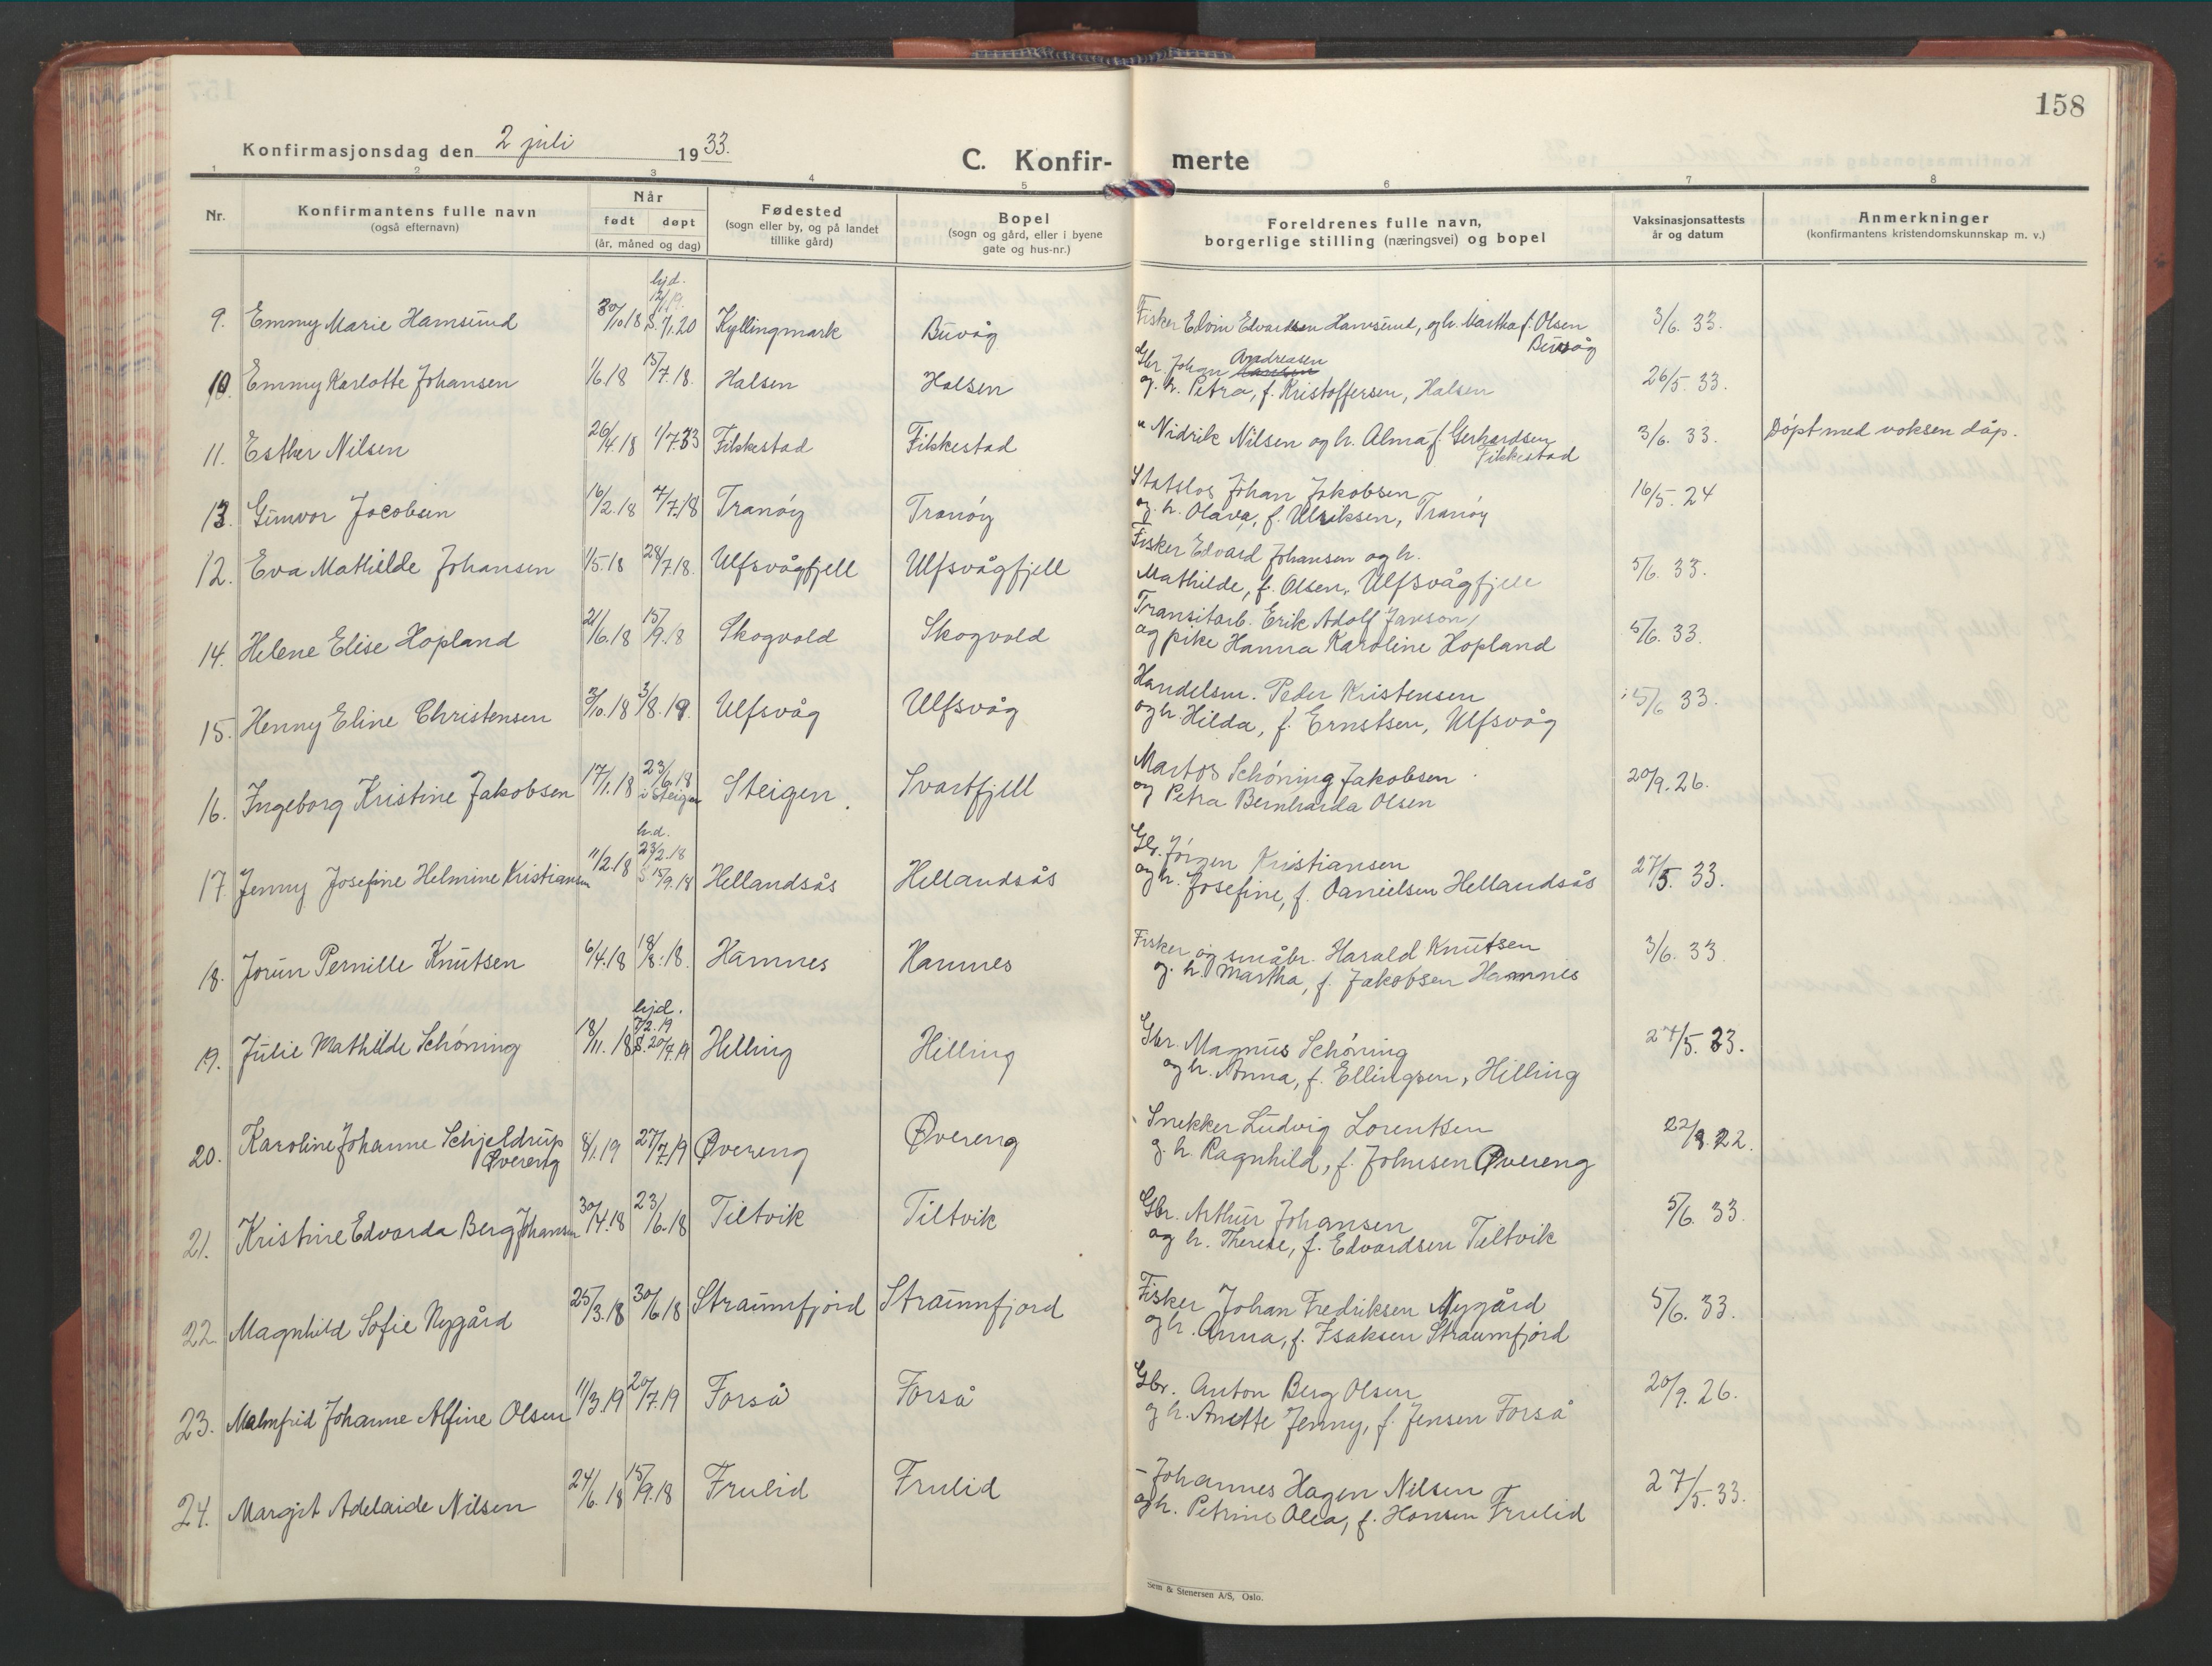 158
Konfirmasjonsdag den 2 juli 1933.
C. Konfirmerte
1 2 3 4 5 6 7 8
Nr.
Konfirmantens fulle navn
(også efternavn)
Når
født døpt
(år, måned og dag)
Fødested
(sogn eller by, og på landet
tillike gård)
Bopel
(sogn og gård, eller i byene
gate og hus-nr.)
Foreldrenes fulle navn,
borgerlige stilling (næringsvei) og bopel
Vaksinasjonsattests
år og datum
Anmerkninger
(konfirmantens kristendomskunnskap m. v.)
hjd.
12/19.
9. Emmy Marie Hamsund 30/10 18 S. 7/1.20 Kyllingmark Buvåg Fisker Edvin Edvardsen Hamsund, og h. Martha f. Olsen 3/6. 33.
Buvåg
10. Emmy Karlotte Johansen 1/6.18 15/7.18. Halsen Halsen Gbr. Johan Andreasen 26/5. 33.
og h. Petra, f. Kristoffersen, Halsen
11. Esther Nilsen 26/4.18 1/7.33 Fikkestad Fikkestad " Nidrik Nilsen og h. Alma f. Gerhardsen 3/6. 33. Døpt med voksen dåp.
Fikkestad
13. Gunvor Jacobsen 16/2.18 7/7.18 Tranøy Tranøy Statslos Johan Jakobsen 16/5. 24
og h. Olava, f. Ulriksen, Tranøy
12. Eva Mathilde Johansen 1/5.18 28/7.18. Ulfsvågfjell Ulfsvågfjell Fisker Edvard Johansen og h. 5/6. 33.
Mathilde, f. Olsen, Ulfsvågfjell
14. Helene Elise Hopland 21/6.18 15/9.18 Skogvold Skogvold Transitarb. Erik Adolf Janson, 5/6. 33.
og pike Hanna Karoline Hopland
15. Henny Eline Christensen 3/10.18 3/8.19. Ulfsvåg Ulfsvåg Handelsm. Peder Kristensen 5/6 33.
og h. Hilda, f. Ernstsen, Ulfsvåg
16. Ingeborg Kristine Jakobsen 17/1.18 23/6.18 Steigen. Svartfjell Martos Schøning Jakobsen 20/9.26.
i Steigen og Petra Bernharda Olsen
h.d.
23/2.18
17. Jenny Josefine Helmine Kristiansen 11/2.18 S 15/9.18 Hellandsås Hellandsås Gbr. Jørgen Kristiansen 27/5. 33.
og h. Josefine, f. Danielsen Hellandsås
18. Jorun Pernille Knutsen 6/4.18 18/8.18. Hamnes Hamnes Fisker og småbr. Harald Knutsen 3/6. 33
og h. Martha, f. Jakobsen Hamnes
hjd.
7/2.19
19. Julie Mathilde Schøning 18/11.18 S. 20/7.19 Helling Helling Gbr. Magnus Schøning 27/5. 33.
og h. Anna, f. Ellingsen, Helling
20. Karoline Johanne Schjeldrup 8/1.19 27/7.19 Øvereng Øvereng Snekker Ludvig Lorentsen 22/8.22.
Øvereng og h. Ragnhild, f. Johnsen Øvereng
21. Kristine Edvarda Berg Johansen 30/4.18 23/6.18 Tiltvik Tiltvik Gbr. Arthur Johansen 5/6. 33.
og h. Therese, f. Edvardsen Tiltvik
22. Magnhild Sofie Nygård 25/3.18 30/6 18 Straumfjord Straumfjord Fisker Johan Fredriksen Nygård 5/6. 33.
og h. Anna, f. Isaksen Straumfjord
23. Malmfrid Johanne Alfine Olsen 11/3.19 20/7.19 Forså Forså Gbr. Anton Berg Olsen 20/9. 26.
og h. Anette Jenny, f. Jensen Forså
24. Margit Adelaide Nilsen 24/6.18 15/9.18 Frulid Frulid – Johannes Hagen Nilsen 27/5. 33.
og h. Petrine Olea, f. Hansen Frulid
Sem & Stenersen A/S, Oslo.